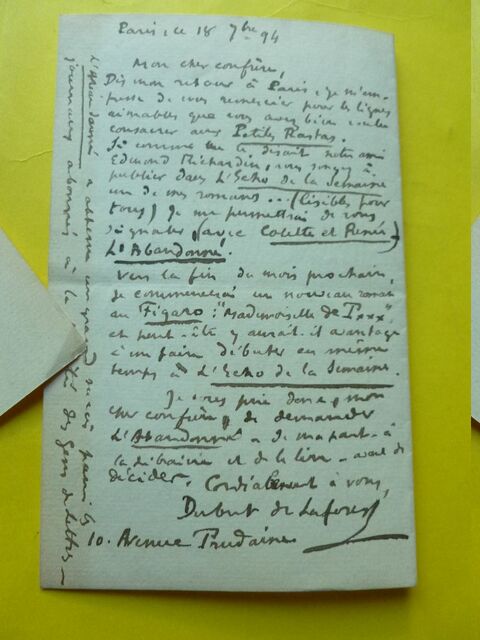 Paris, ce 18 7bre 94
Mon cher confrère,
Dès mon retour à Paris, je m'em-
presse de vous remercier pour les lignes
aimables que vous avez bien voulu
consacrer aux Petits Rastas.
Si comme me le disait notre ami
Edmond Richardin, vous songez à
publier dans L'Echo de la Semaine
un de mes romans... (lisibles pour
tous) je me permettrai de vous
signaler (avec Colette et Renée)
L'Abandonné.
Vers la fin du mois prochain,
je commencerai un nouveau roman
au Figaro: "Mademoiselle de Txxx",
et peut-être y aurait-il avantage
à me faire débuter en même
temps à L'Echo de la Semaine.
Je vous prie donc, mon
cher confrère, de demander
L'Abandonné - de ma part - à
la librairie et de le lire - avant de
décider. Cordialement à vous,
Dubut de Laforest
10. Avenue Trudaine
L'Abandonné a obtenu un grand succès parmi les
journaux abonnés à la Sté des Gens de Lettres